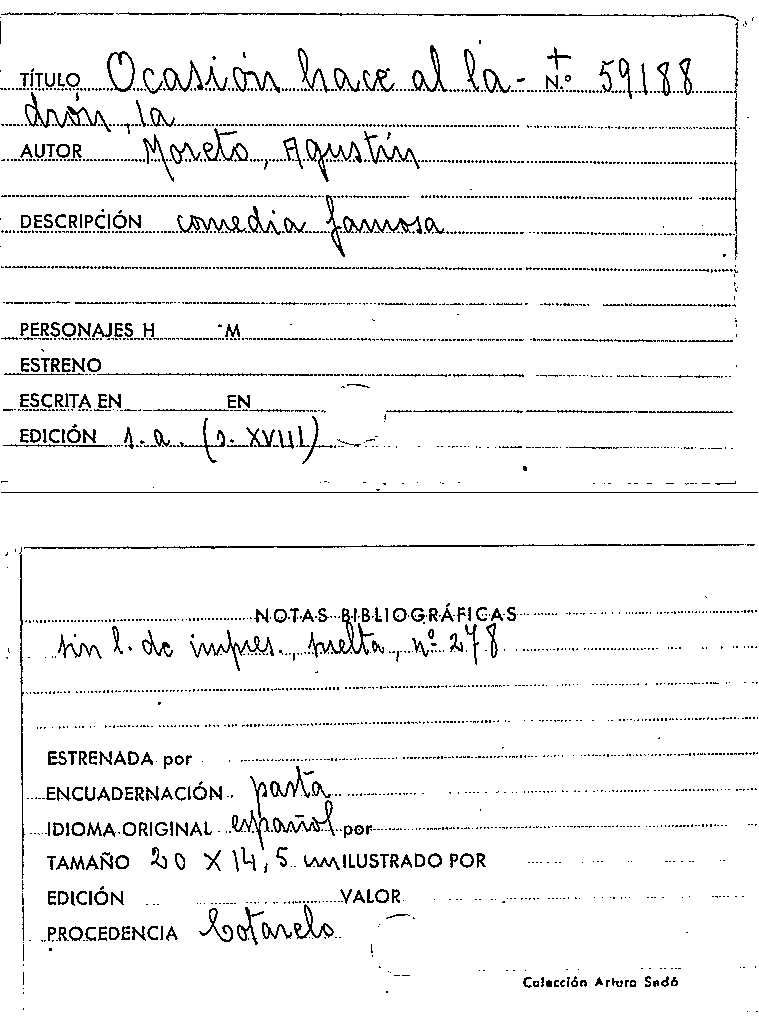 TÍTULO Ocasión hace al la- + N.º 59188
drón, la
AUTOR Moreto, Agustín
DESCRIPCIÓN comedia famosa
PERSONAJES H M
ESTRENO
ESCRITA EN EN
EDICIÓN s.a. (s. XVIII)
NOTAS BIBLIOGRÁFICAS
sin l. de impres., suelta, nº 278
ESTRENADA por
ENCUADERNACIÓN pasta
IDIOMA ORIGINAL español por
TAMAÑO 20 X 14,5 cm ILUSTRADO POR
EDICIÓN VALOR
PROCEDENCIA Cotarelo
Colección Arturo Sedó